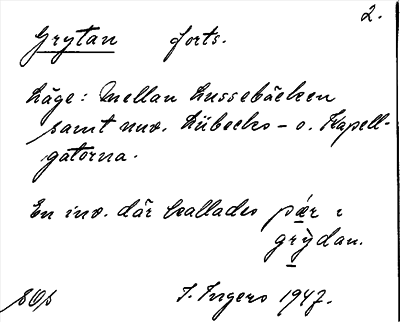 2.
Grytan forts.
Läge: Mellan Hussebäcken
samt nuv. Lübecks- o. Kapell-
gatorna.
En inv. där kallades pær i
grỳdan.
SOs I. Ingers 1947.